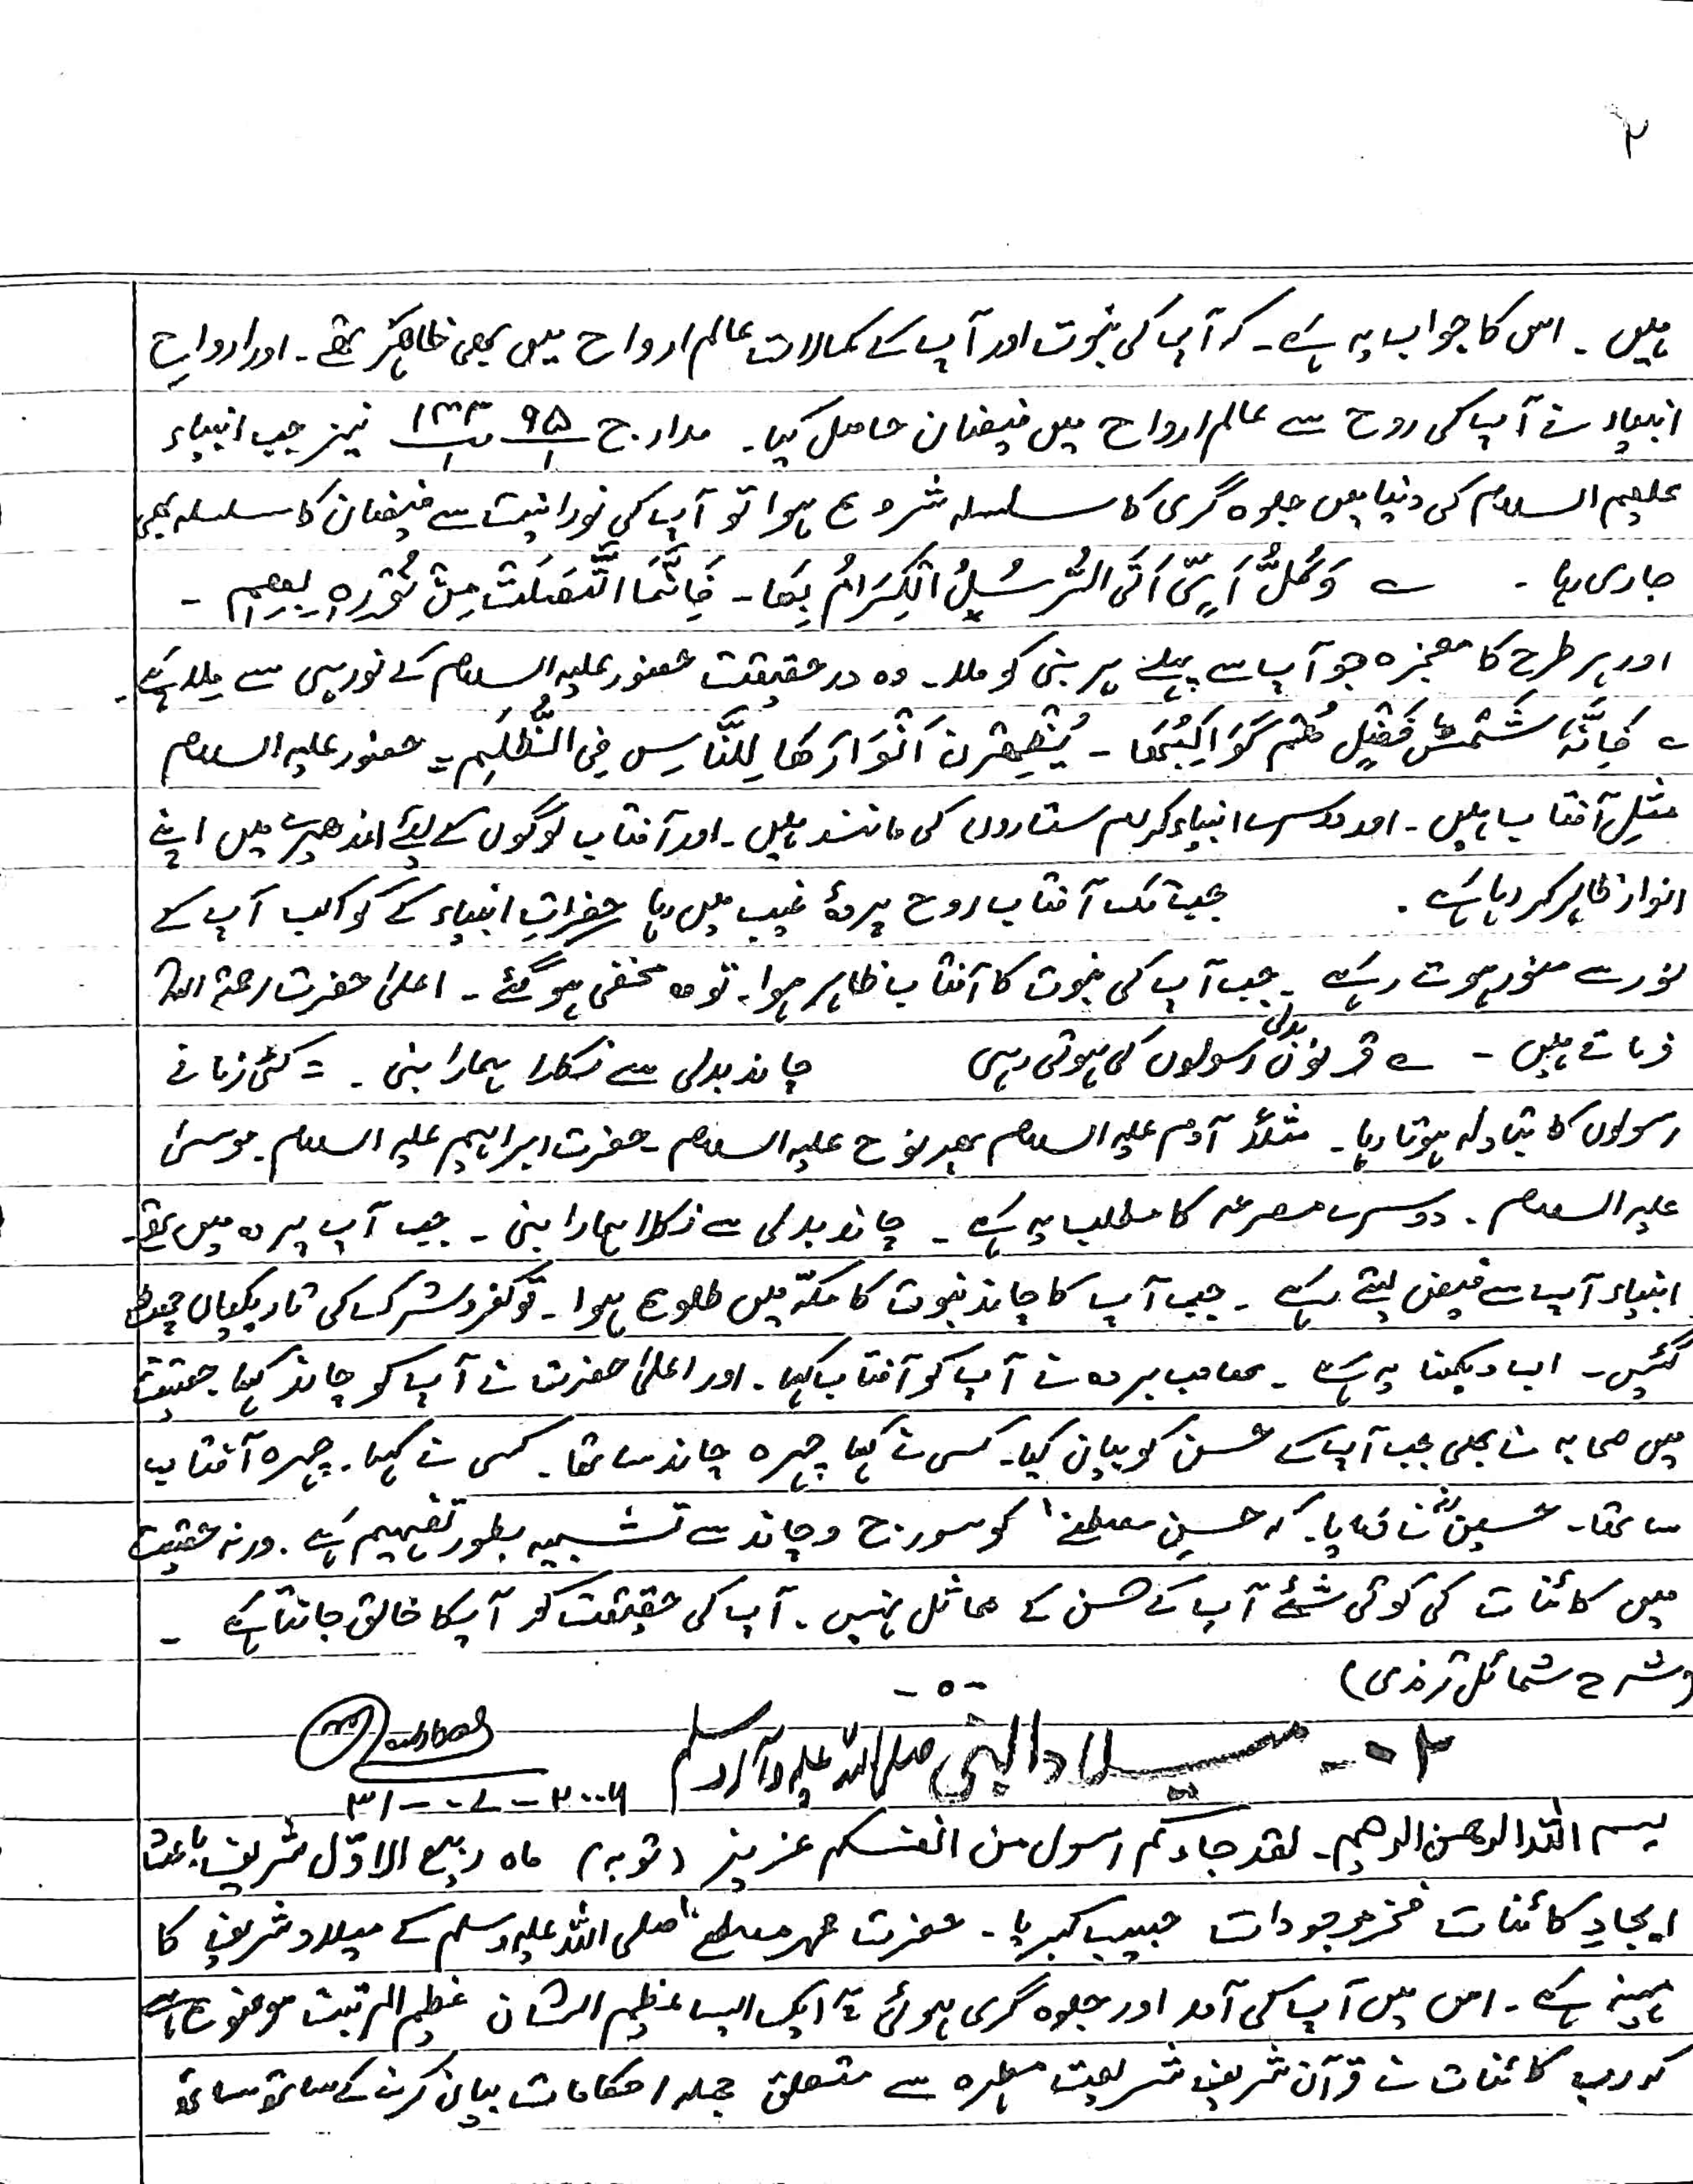 ۲
ہیں ۔ اس کا جواب یہ ہے ۔ کہ آپ کی نبوت اور آپ کے کمالات عالم ارواح میں بھی ظاہر تھے ۔ اور ارواحِ
انبیاء نے آپ کی روح سے عالم ارواح میں فیضان حاصل کیا ۔ مدارج ۹۵/۱ ۱۳۳/۱ نیز جب انبیاء
علیہم السلام کی دنیا میں جلوہ گری کا سلسلہ شروع ہوا تو آپ کی نورانیت سے فیضان کا سلسلہ بھی
جاری رہا ۔ ؎ وَکُلُّ آیٍ اَتَی الرُّسُلُ الْکِرَامُ بِھَا ۔ فَاِنَّمَا اتَّصَلَتْ مِنْ نُّوْرِہٖ بِھِم ۔
اور ہر طرح کا معجزہ جو آپ سے پہلے ہر نبی کو ملا ۔ وہ درحقیقت حضور علیہ السلام کے نور ہی سے ملا ہے ۔
؎ فَاِنَّہٗ شَمْسُ فَضْلٍ ھُمْ کَوَاکِبُھَا ۔ یُظْھِرْنَ اَنْوَارَھَا لِلنَّاسِ فِی الظُّلَمِ = حضور علیہ السلام
مثلِ آفتاب ہیں ۔ اور دوسرے انبیاء کرام ستاروں کی مانند ہیں ۔ اور آفتاب لوگوں کے لئے اندھیرے میں اپنے
انوار ظاہر کر رہا ہے ۔ جب تک آفتاب روح پردۂ غیب میں رہا حضراتِ انبیاء کے کواکب آپ کے
نور سے منور ہوتے رہے ۔ جب آپ کی نبوت کا آفتاب ظاہر ہوا ۔ تو وہ مخفی ہو گئے ۔ اعلیٰ حضرت رحمۃ اللہ
فرماتے ہیں ۔ ؎ قرنوں بدلی رسولوں کی ہوتی رہی چاند بدلی سے نکلا ہمارا نبی ۔ = کئی زمانے
رسولوں کا تبادلہ ہوتا رہا ۔ مثلاً آدم علیہ السلام پھر نوح علیہ السلام ۔ حضرت ابراہیم علیہ السلام ۔ موسیٰ
علیہ السلام ۔ دوسرے مصرعہ کا مطلب یہ ہے ۔ چاند بدلی سے نکلا ہمارا نبی ۔ جب آپ پردہ میں تھے ۔
انبیاء آپ سے فیض لیتے رہے ۔ جب آپ کا چاند نبوت کا مکّہ میں طلوع ہوا ۔ تو کفر و شرک کی تاریکیاں چھٹ
گئیں ۔ اب دیکھنا یہ ہے ۔ صاحب بردہ نے آپ کو آفتاب کہا ۔ اور اعلیٰ حضرت نے آپ کو چاند کہا ۔ حقیقت
میں صحابہ نے بھی جب آپ کے حسن کو بیان کیا ۔ کسی نے کہا چہرہ چاند سا تھا ۔ کسی نے کہا ۔ چہرہ آفتاب
سا تھا ۔ نے فرمایا ۔ کہ حسنِ مصطفےٰ کو سورج و چاند سے تشبیہ بطور تفہیم ہے ۔ ورنہ حقیقت
میں کائنات کی کوئی شئے آپ کے حسن کے مماثل نہیں ۔ آپ کی حقیقت کو آپ کا خالق جانتا ہے ۔
(شرح شمائل ترمذی)
-٥-
۲-۰- میلاد النبی صلی اللہ علیہ وآلہ وسلم
۳۱-۰۷-۲۰۰۶
بسم اللہ الرحمن الرحیم ۔ لقد جاءکم رسول من انفسکم عزیز (توبہ) ماہ ربیع الاوّل شریف باعث
ایجادِ کائنات فخر موجودات حبیب کبریا ۔ حضرت محمد مصطفےٰ صلی اللہ علیہ وسلم کے میلاد شریف کا
مہینہ ہے ۔ اس میں آپ کی آمد اور جلوہ گری ہوئی یہ ایک ایسا عظیم الشان عظیم المرتبت موضوع ہے
کہ رب کائنات نے قرآن شریف شریعت مطہرہ سے متعلق جملہ احکامات بیان کرنے کے ساتھ ساتھ